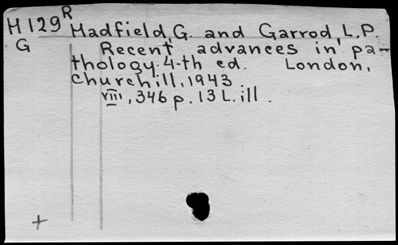 R
H129 Hadfield, G. and Garrod, L.P.
G Recent advances in pa-
thology. 4-th ed. London,
Churchill, 1943.
VIII, 346 p. 13 L. ill.
+